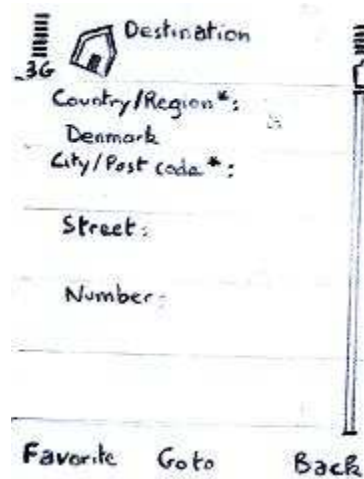 Destination
3G
Country/Region*:
Denmark
City/Post code*:
Street:
Number:
Favorite Goto Back